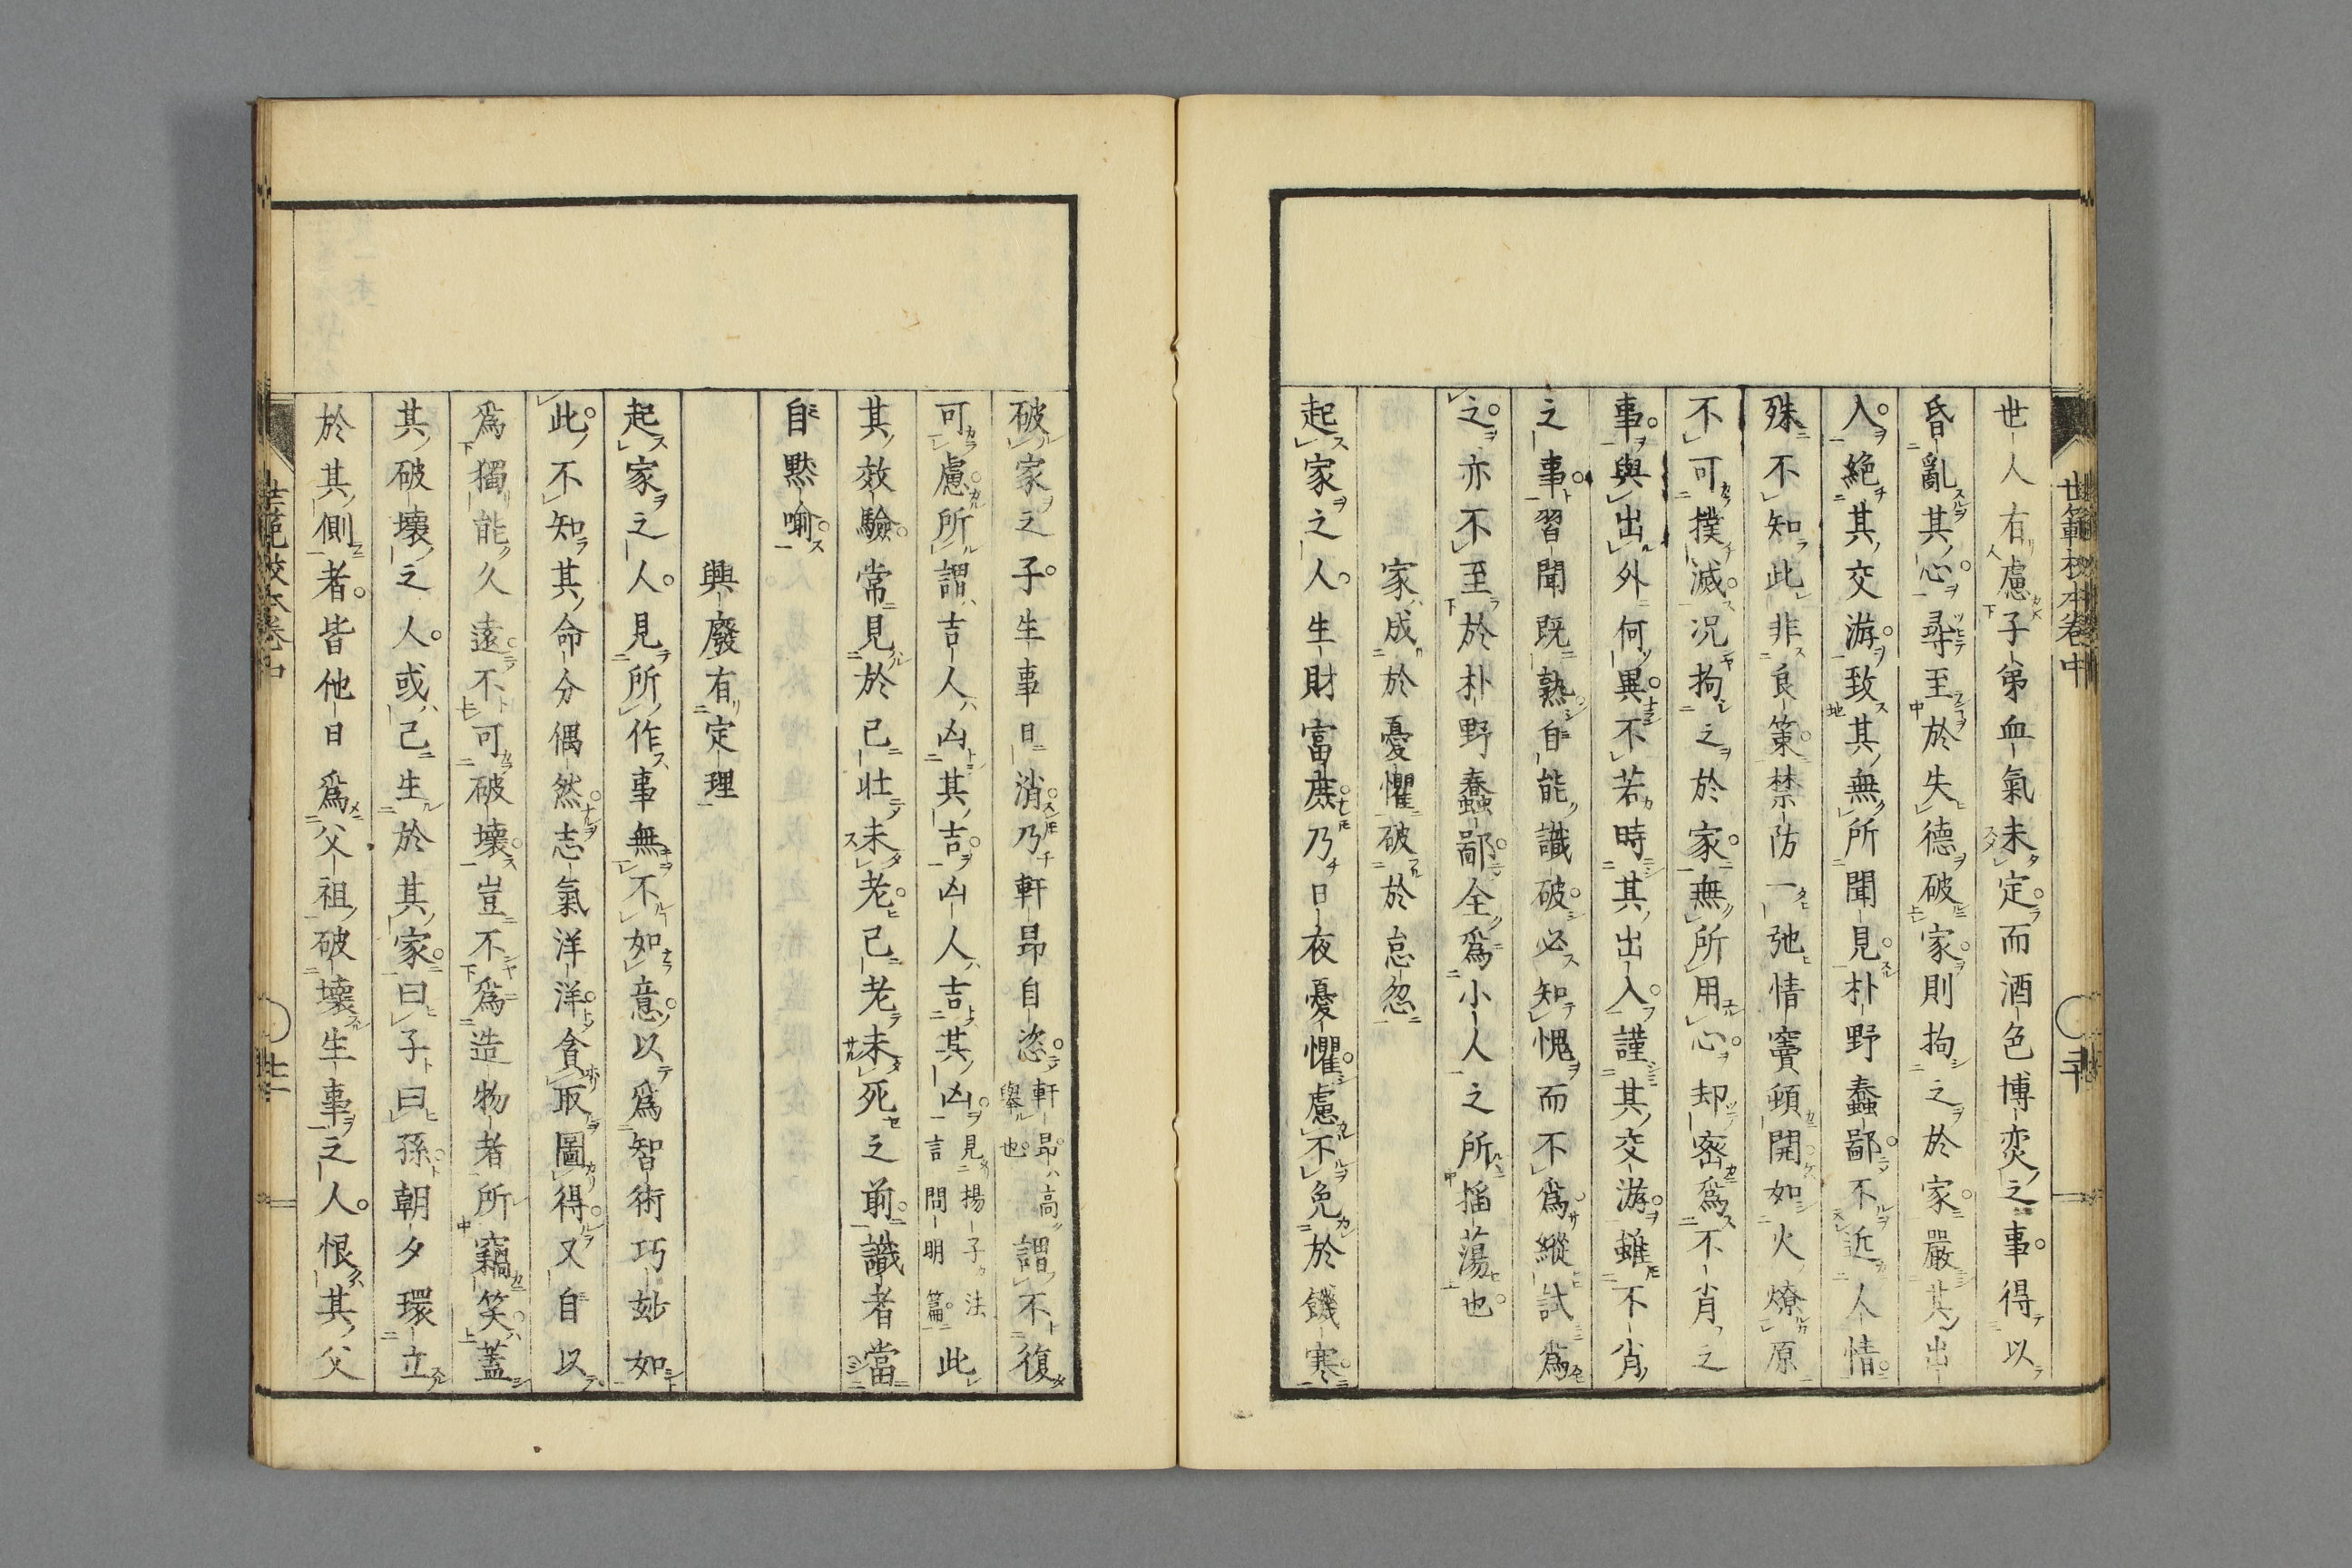 世範校本卷中
世人有慮子弟血氣未定而酒色博奕之事得以
昏亂其心尋至於失德破家則拘之於家嚴其出
入絶其交游致其無所聞見朴野蠢鄙不近人情
殊不知此非良策禁防一弛情竇頓開如火燎原
不可撲滅况拘之於家無所用心却密爲不肖之
事與出外何異不若時其出入謹其交游雖不肖
之事習聞既熟自能識破必知愧而不爲縱試爲
之亦不至於朴野蠢鄙全爲小人之所搖蕩也
家成於憂懼破於怠忽
起家之人生財富庶乃日夜憂懼慮不免於饑寒
破家之子生事日消乃軒昂自恣軒昂高
舉也
謂不復
可慮所謂吉人凶其吉凶人吉其凶見揚子法
言問明篇
此
其效驗常見於己壯未老己老未死之前識者當
自黙喻
興廢有定理
起家之人見所作事無不如意以爲智術巧玅如
此不知其命分偶然志氣洋洋貪取圖得又自以
爲獨能久遠不可破壞豈不爲造物者所竊笑蓋
其破壞之人或己生於其家曰子曰孫朝夕環立
於其側者皆他日爲父祖破壞生事之人恨其父
世範校本卷中